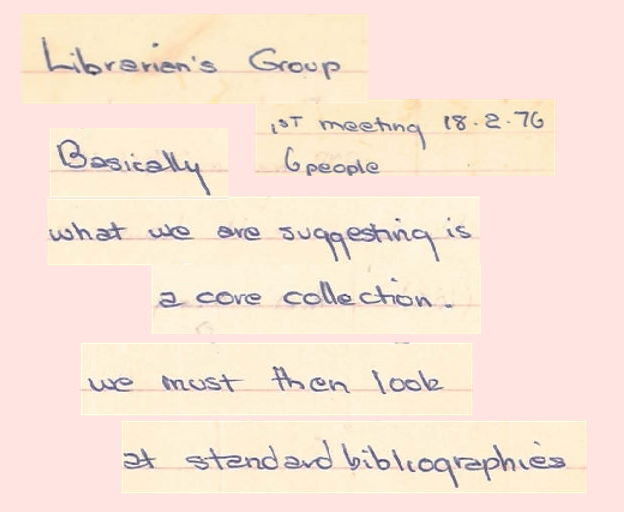 Librarian's Group
1ST meeting 18.2.76
6 people
Basically
what we are suggesting is
a core collection.
we must then look
at standard bibliographies